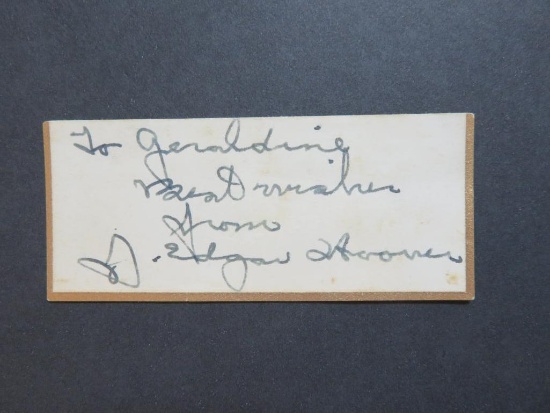 To Geraldine
Best wishes
from
J. Edgar Hoover